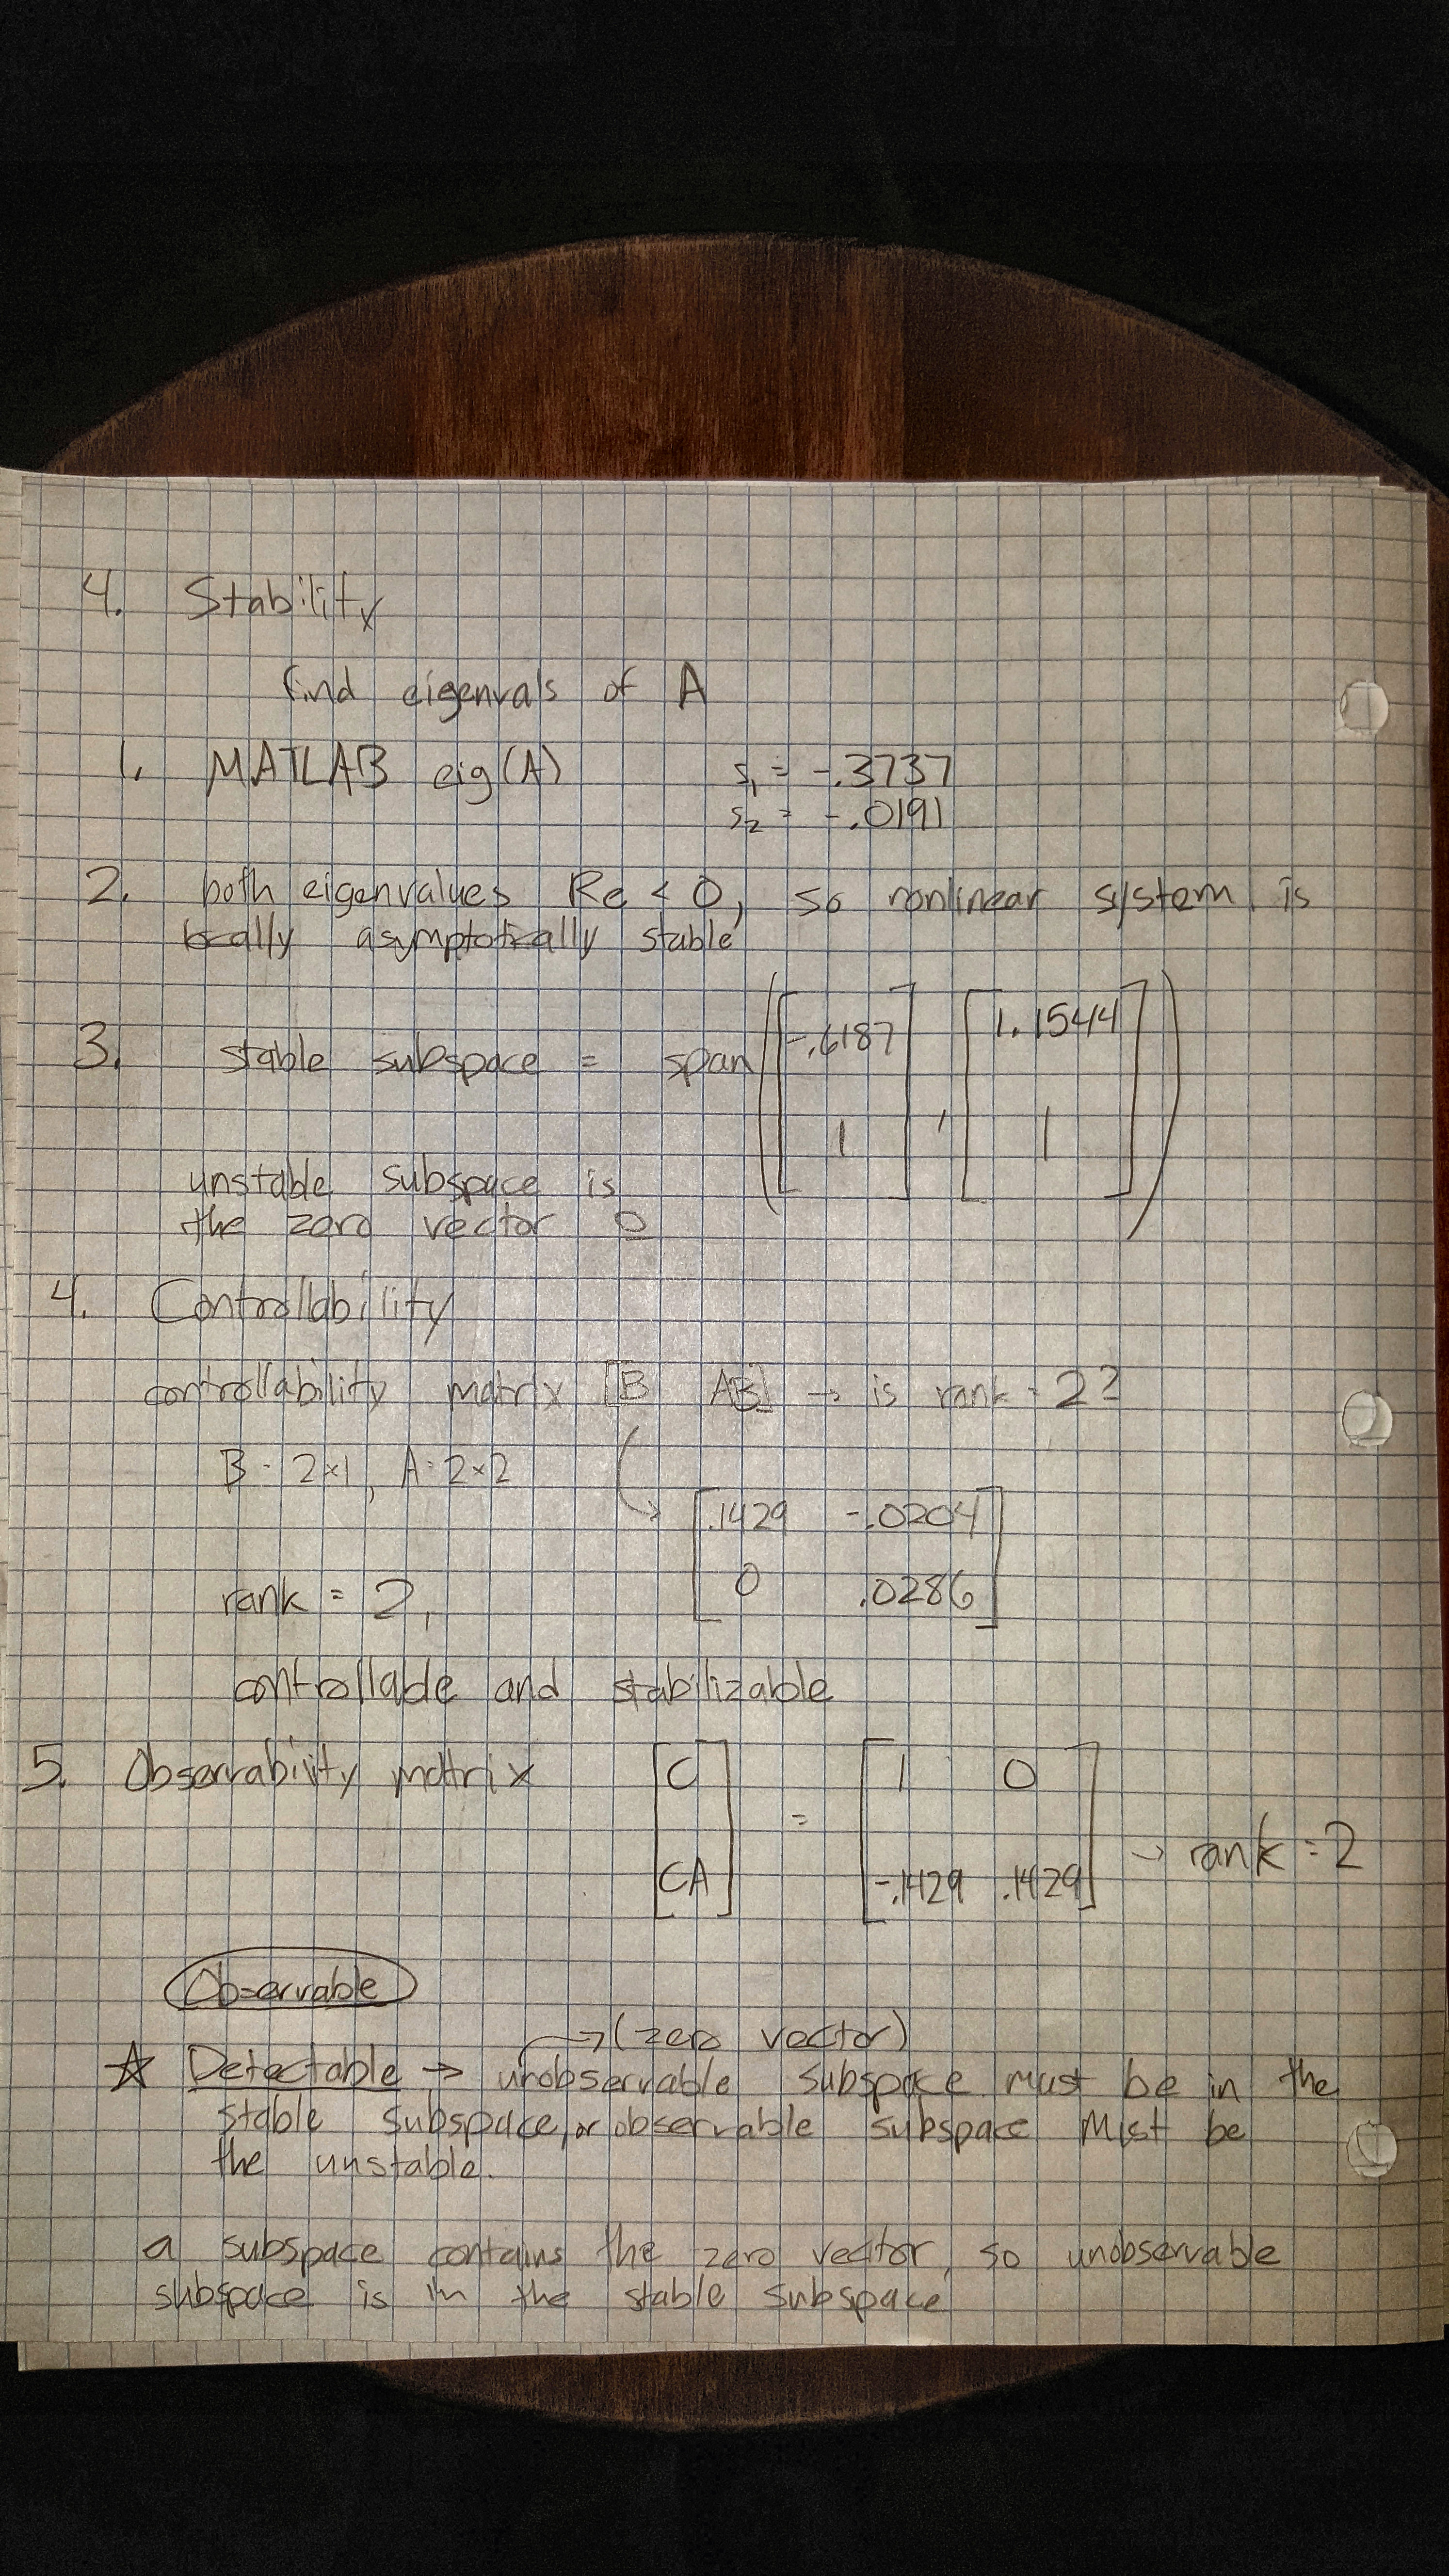 4. Stability
find eigenvals of A
1. MATLAB eig(A) s₁ = -.3737
s₂ = -.0191
2. both eigenvalues Re < 0, so nonlinear system is
locally asymptotically stable
3. stable subspace = span ([-.6187 1], [1.1544 1])
unstable subspace is
the zero vector 0
4. Controllability
controllability matrix B AB → is rank = 2?
B · 2×1, A · 2×2
[.1429 -.0204
0 .0286]
rank = 2,
controllable and stabilizable
5. Observability matrix [C = [1 0
CA] -.1429 .1429] → rank = 2
Observable
→ (zero vector)
☆ Detectable → unobservable subspace must be in the
stable subspace, or observable subspace must be
the unstable.
a subspace contains the zero vector, so unobservable
subspace is in the stable subspace.